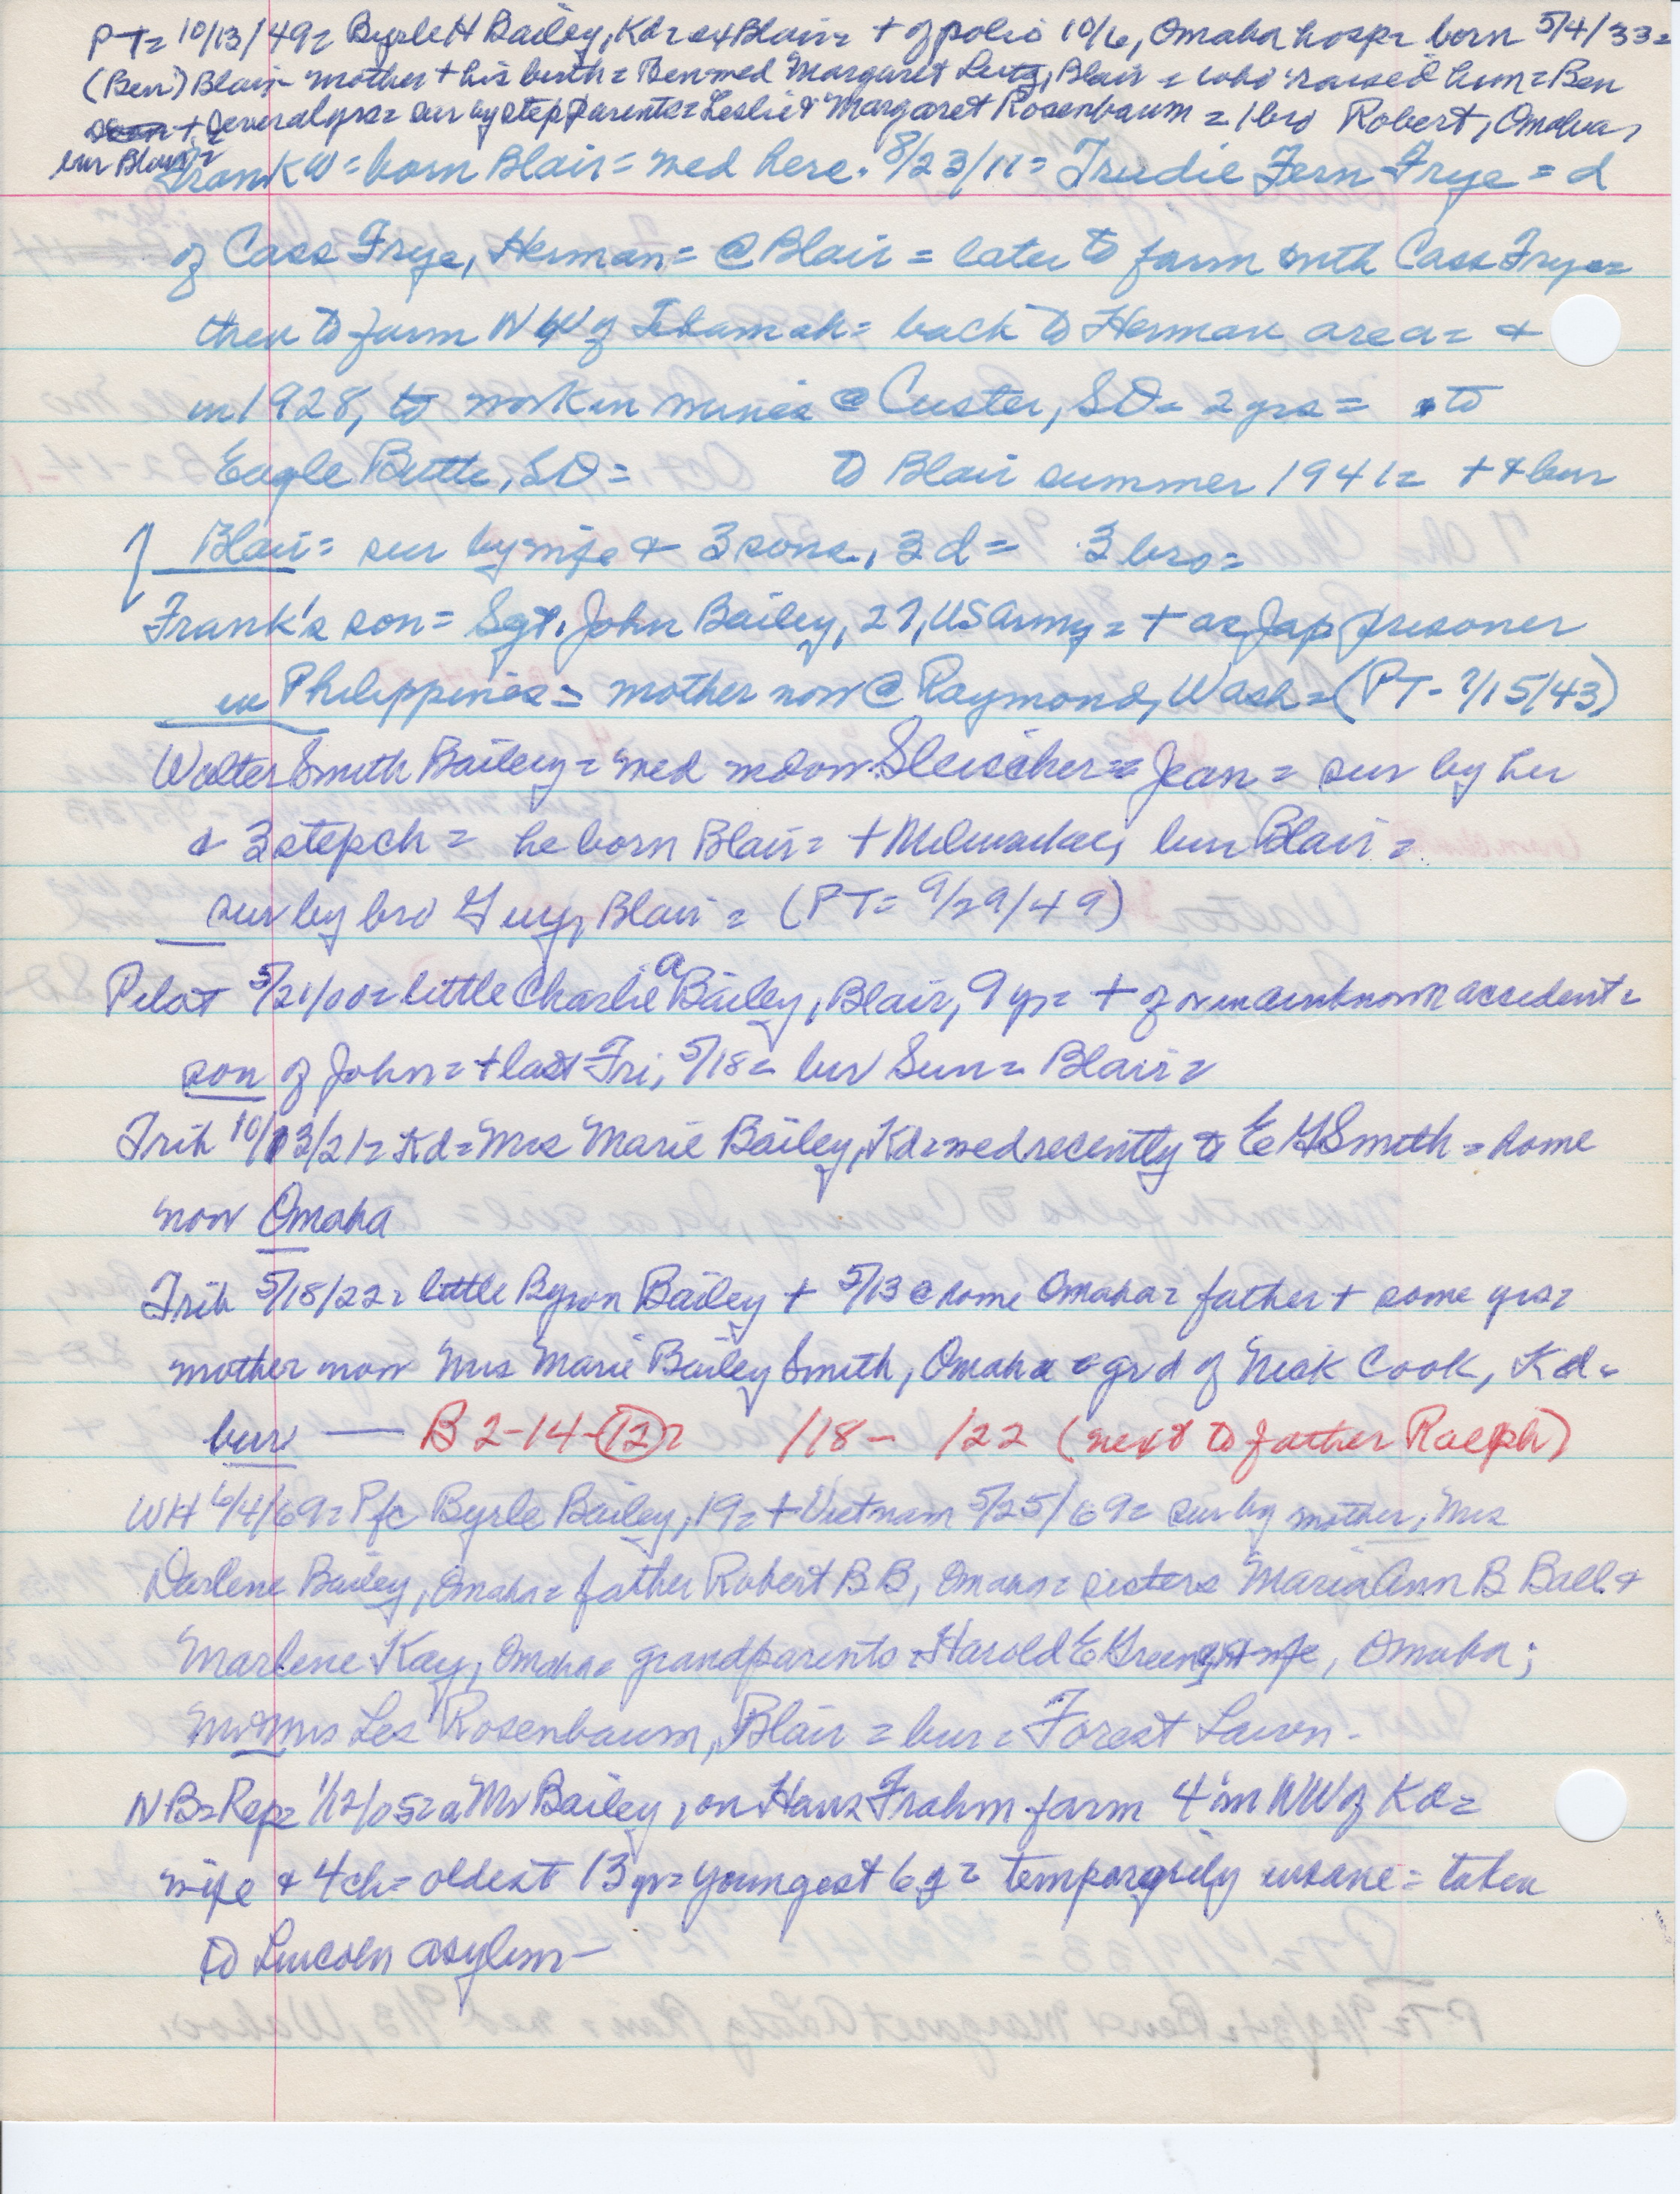 PT= 10/13/49= Byrle H Bailey, Kd & Blair= + of polio 10/6, Omaha hosp= born 5/4/33=
(Ben) Blair= mother + his birth= Ben med Margaret Lutz, Blair = who raised him= Ben
+ several yrs= sur by step parents= Leslie & Margaret Rosenbaum = 1 bro Robert, Omaha,
bur Blair=
Frank W= born Blair= med here. 8/23/11= Trudie Fern Frye = d
of Cass Frye, Herman= @ Blair = later to farm with Cass Frye=
then to farm NW of Tekamah= back to Herman area= &
in 1928, to work in mines @ Custer, SD= 2 yrs= to
Eagle Butte, SD= to Blair summer 1941= + & bur
Blair= sur by wife & 3 sons, 3 d= 3 bro=
Frank's son= Sgt. John Bailey, 27, US Army= + as Jap prisoner
in Philippines= mother now @ Raymond, Wash=(PT- 7/15/43)
Walter Smith Bailey= med Jean= sur by her
& 3 stepch= he born Blair= + Milwaukee, bur Blair=
sur by bro Guy, Blair= (PT= 9/29/49)
Pilot 5/21/00= little Charlie a Bailey, Blair, 9 yr= + of unknown accident=
son of John= + last Fri, 5/18= bur Sun= Blair=
Trib 10/13/21= Kd= Mrs Marie Bailey, Kd= med recently to E G Smith= home
now Omaha
Trib 5/18/22= little Byron Bailey + 5/13 @ home Omaha= father + some yrs=
mother now Mrs Marie Bailey Smith, Omaha gr d of Nick Cook, Kd=
bur — B2-14-12= /18- /22 (next to father Ralph)
WH 6/4/69= Pfc Byrle Bailey, 19= + Vietnam 5/25/69= sur by mother, Mrs
Darlene Bailey, Omaha= father Robert B B, Omaha= sisters Maria Ann B Ball &
Marlene Kay, Omaha= grandparents= Harold E & wife, Omaha;
Mr & Mrs Les Rosenbaum, Blair= bur= Forest Lawn-
NB= Rep= 1/12/05= a Mr Bailey, on Hans Frahm farm 4 mi NW of Kd=
wife & 4 ch= oldest 13 yr= youngest 6 y= temporarily insane= taken
to Lincoln asylum—